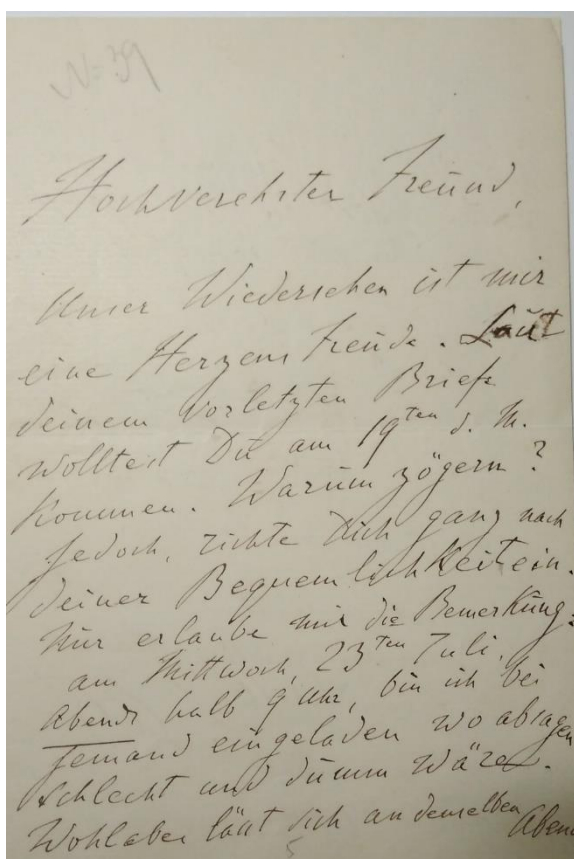 No 39
Hochverehrter Freund,
Unser Wiedersehen ist mir
eine Herzens Freude. Laut
deinem vorletzten Briefe
wolltest Du am 19ten d. M.
kommen. Warum zögern?
Jedoch, richte Dich ganz nach
deiner Bequemlichkeit ein.
Nur erlaube mir die Bemerkung:
am Mittwoch, 23ten Juli,
Abends halb 9 Uhr, bin ich bei
Jemand eingeladen wo absagen
schlecht und dumm wäre.
Wohl aber lässt sich an demselben Abend